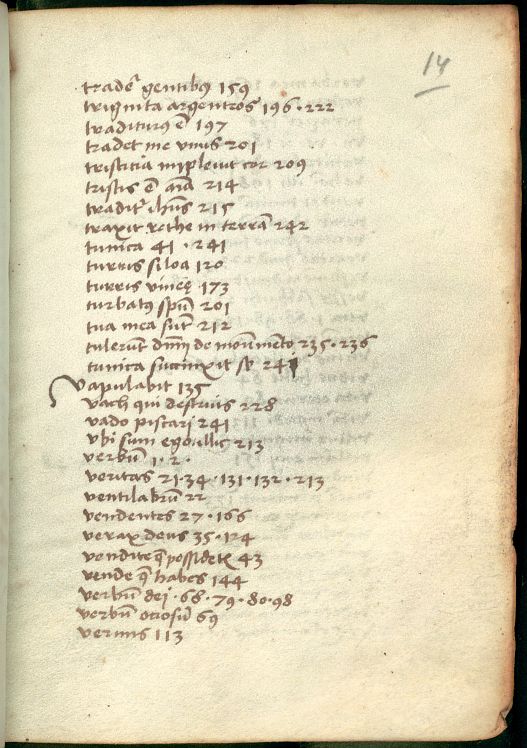 14
tradet̄ gentibꝰ 159
triginta argenteos 196 · 222
traditurꝰ ē 197
tradet me vnus 201
tristitia impleuit cor 209
tristis ē aīa 214
tradit̄ ihūs 215
traxit rethe in terrā 242
tunica 41 · 241
turris siloa 120
turris vineę 173
turbatꝰ spū 201
tua mea sūt 212
tulerunt dn̄m de monumēto 235 · 236
tunica succinxit se 241
Vapulabit 135
vach qui destruis 228
vado piscari 241
vbi sum ego illic 213
verbū 1 · 2 ·
veritas 21 · 34 · 131 · 132 · 213
ventilabrū 22
vendentes 27 · 166
verax deus 35 · 124
vendite q̄ possidetꝭ 43
vende q̄ habes 144
verbū dei · 68 · 79 · 80 · 98
verbū otiosū 69
vermis 113